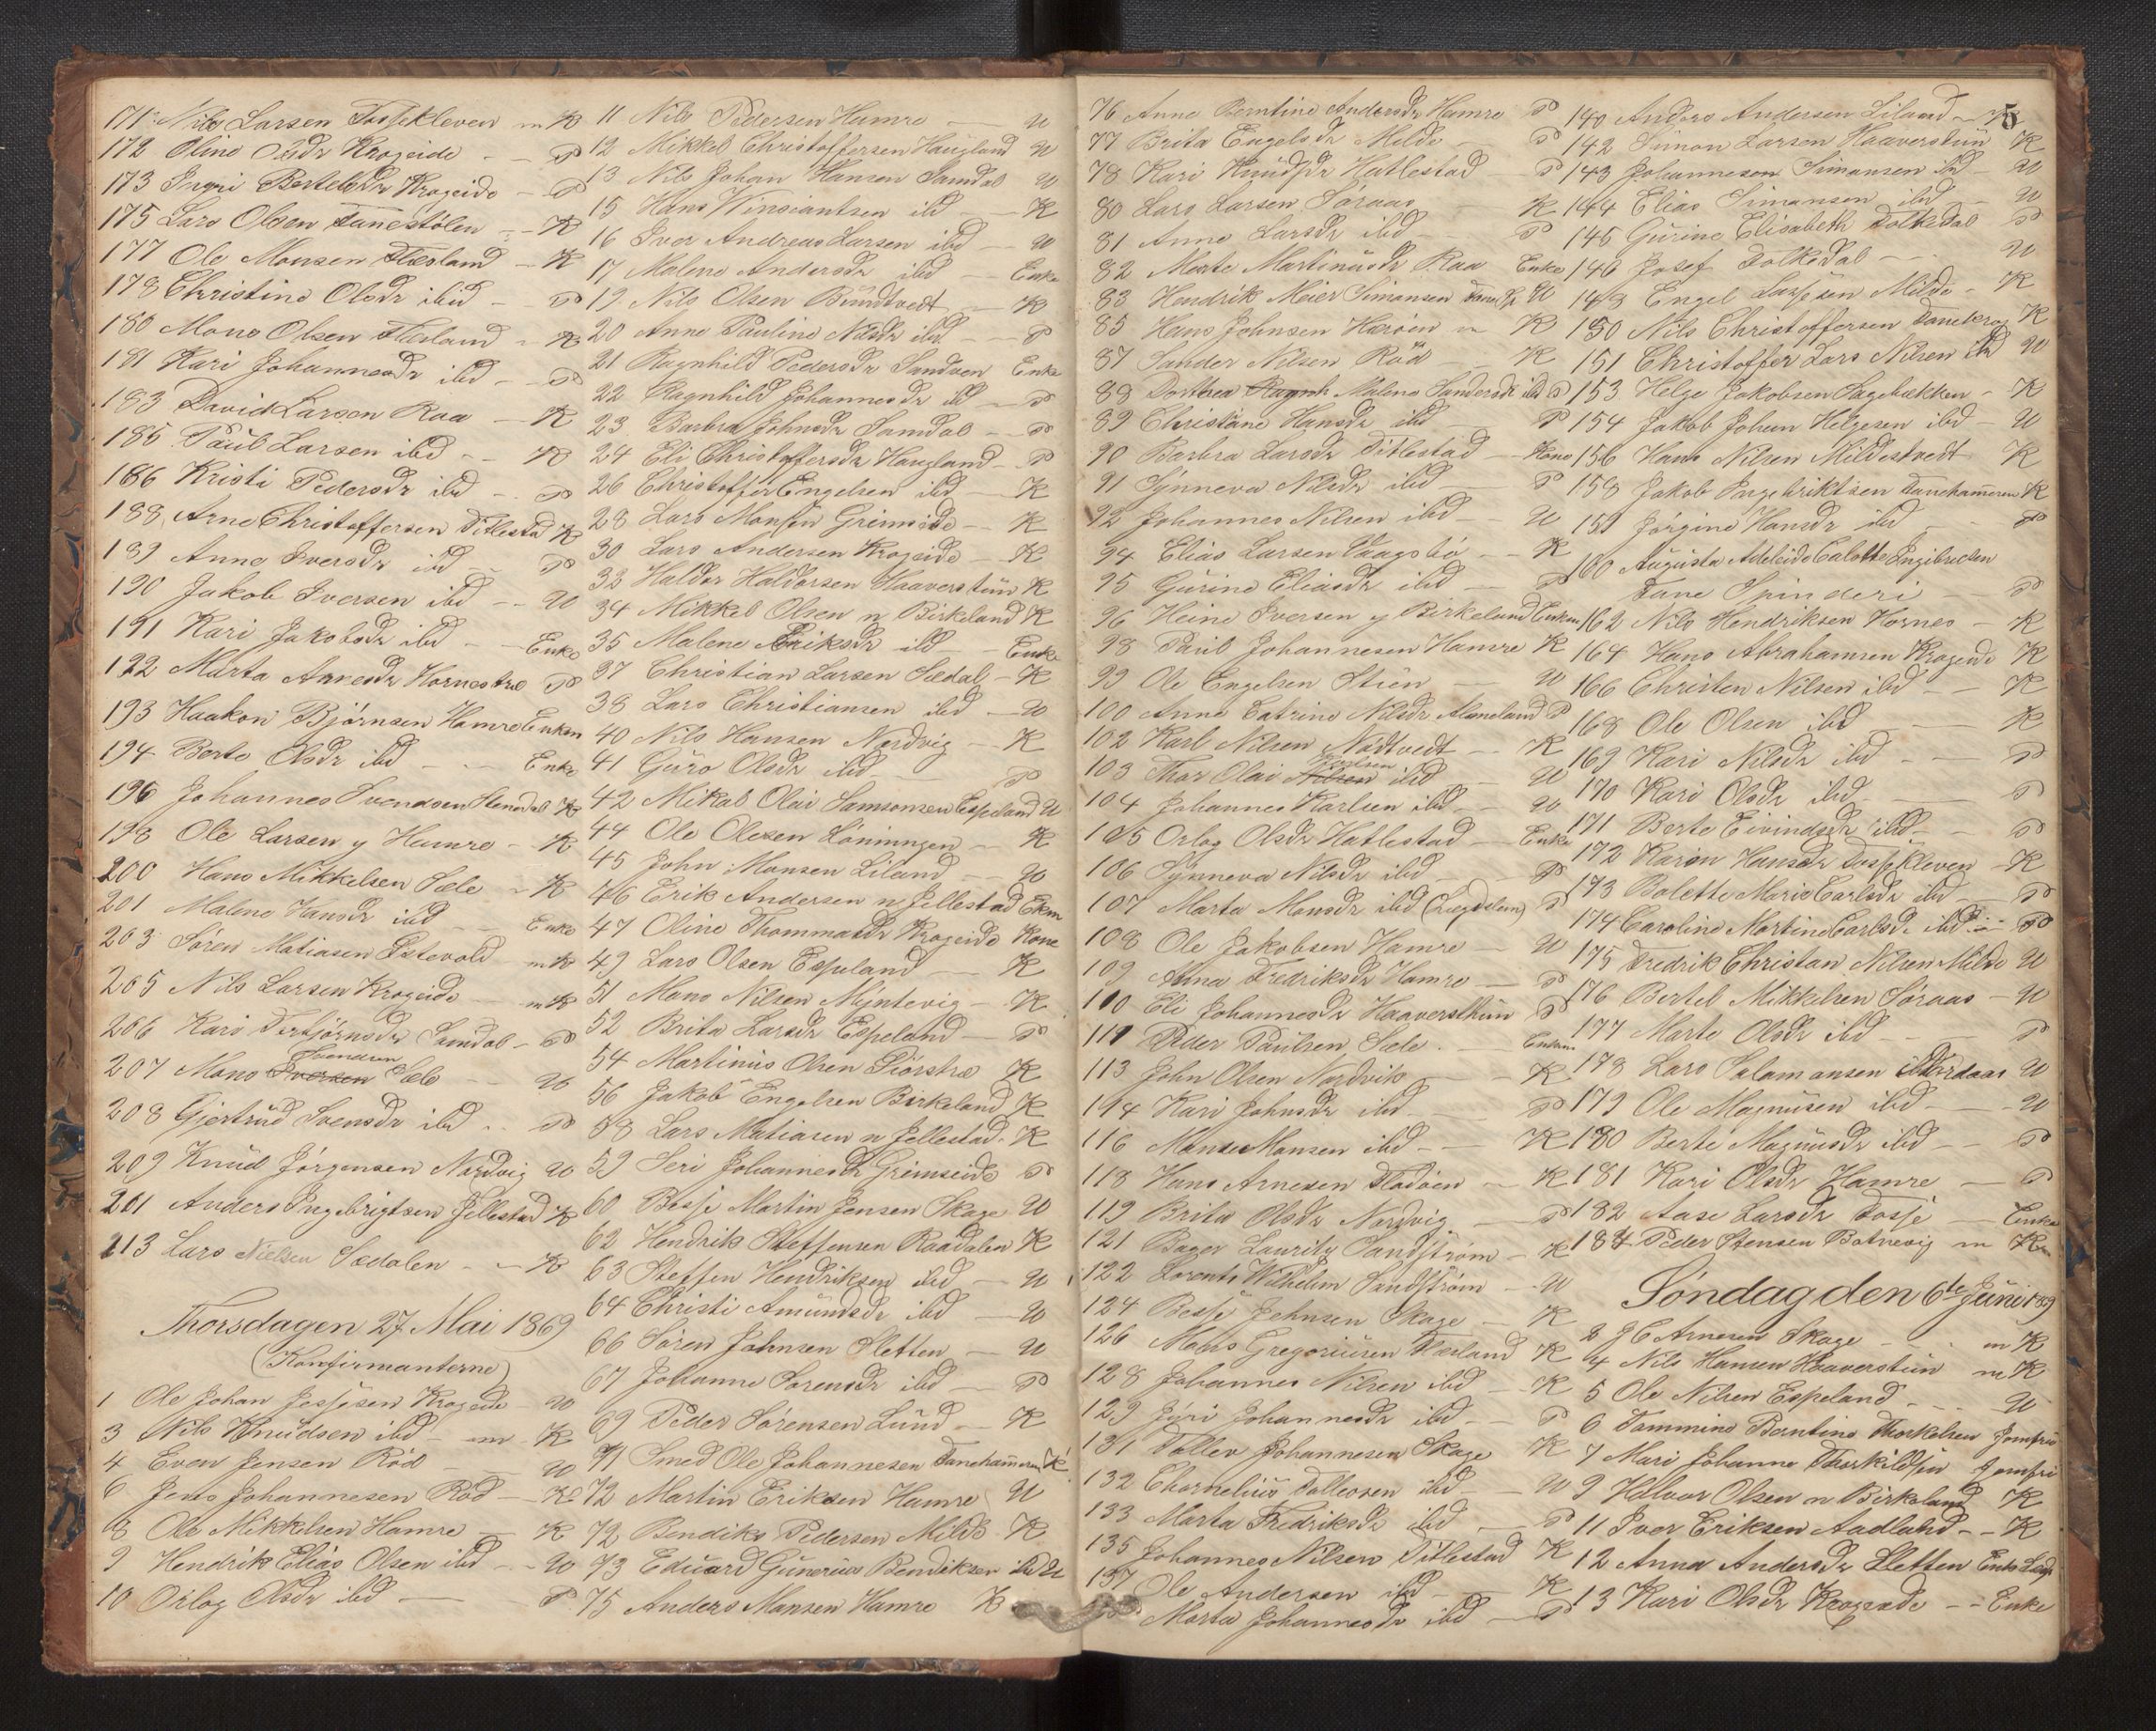 171 Nils Larsen Tossekleven m K
172 Oline Olsdr Krogeide P
173 Ingri Bertelsdr Krogeide P
175 Lars Olsen Fanestølen K
177 Ole Monsen Flesland K
178 Christine Olsdr ibid P
180 Mons Olsen Flesland K
181 Kari Johannesdr ibd P
183 David Larsen Raa K
185 Paul Larsen ibd K
186 Kristi Pedersdr ibd P
188 Arne Christoffersen Ditlestad K
189 Anne Iversdr ibd P
190 Jakob Iversen ibd U
191 Kari Jakobsdr ibd Enke
122 Marta Arnesdr Hornestræ P
193 Haakon Bjørnsen Hamre Enkem
194 Berte Olsdr ibd Enke
196 Johannes Svendsen Stendal K
198 Ole Larsen y Hamre K
200 Hans Mikkelsen Sæle K
201 Malene Hansdr ibd Enke
203 Søren Matiasen Estevold m K
205 Nils Larsen Krogeide m K
206 Kari Torbjørnsdr Samdal P
207 Mons Iversen Svendsen Sæle U
208 Gjertrud Svensdr ibd P
209 Knud Jørgensen Nordvig U
201 Anders Ingebrigtsen Jellestad K
213 Lars Nielsen Sædalen K
Thorsdagen 27 Mai 1869
(Konfirmanterne)
1 Ole Johan Jessesen Krogeide U
3 Nils Knudsen ibd m K
4 Even Jensen Röd U
6 Jens Johannesen Röd K
8 Ole Mikkelsen Hamre K
9 Hendrik Elias Olsen ibd U
10 Orlog Olsdr ibd P
11 Nils Pedersen Hamre U
12 Mikkel Christoffersen Haugland U
13 Nils Johan Hansen Samdal U
15 Hans Vinsiantsen ibd K
16 Iver Andreas Larsen ibd U
17 Malene Andersdr ibd Enke
19 Nils Olsen Bundtvedt K
20 Anne Pauline Nilsdr ibd P
21 Ragnhild Pedersdr Sandven Enke
22 Ragnhild Johannesdr ibd P
23 Barbra Johnsdr Samdal P
24 Eli Christoffersdr Haugland P
26 Christoffer Engelsen ibd K
28 Lars Monsen Grimseide K
30 Lars Andersen Krogeide K
32 Haldor Haldorsen Haaverstun K
34 Mikkel Olsen n Birkeland K
35 Malene Eriksdr ibd Enke
37 Christian Larsen Sædal K
38 Lars Christiansen ibd U
40 Nils Hansen Nordvig K
41 Guro Olsdr ibd P
42 Mikal Olai Samsonsen Espeland U
44 Ole Olesen Löningen K
45 John Monsen Liland U
46 Erik Andersen n Jellestad Ekm
47 Oline Thommasdr Krogeide Kone
49 Lars Olsen Espeland K
51 Mons Nilsen Myntevig K
52 Brita Larsdr Espeland P
54 Martinus Olsen Siørstræ K
56 Jakob Engelsen Birkeland K
58 Lars Matiasen n Jellestad K
59 Seri Johannesdr Grimseide P
60 Besse Martin Jensen Skage U
62 Hendrik Steffensen Raadalen K
63 Steffen Hendriksen ibd U
64 Christi Amundsdr ibd U
66 Sören Johnsen Sletten U
67 Johanne Sorensdr ibd P
69 Peder Sörensen Lund K
71 Smed Ole Johannesen Fanehammeren K
72 Martin Eriksen Hamre U
72 Bendiks Pedersen Milde K
73 Eduard Gunerius Bendiksen ibd U
75 Anders Monsen Hamre K
76 Anne Berntine Andersdr Hamre P
77 Brita Engelsdr Milde P
78 Kari Knudsdr Hatlestad P
80 Lars Larsen Söraas K
81 Anne Larsdr ibd P
82 Marte Martinusdr Raa Enke
83 Hendrik Meier Simonsen U
85 Hans Johnsen Herøen m K
87 Sander Nilsen Röd K
88 Dorthea Malene Sandersdr ibd P
89 Christiane Hansdr ibd P
90 Barbra Larsdr Ditlestad Kone
91 Synneva Nilsdr ibd P
92 Johannes Nilsen ibd U
94 Elias Larsen Vaagsbö K
95 Gurine Eliasdr ibd P
96 Heine Iversen y Birkeland Enkem
98 Paul Johannesen Hamre K
99 Ole Engelsen Stuen U
100 Anne Catrine Nilsdr Alaneland P
102 Karl Nilsen Nödtvedt K
103 Thor Olai Nilsen Karlsen ibd U
104 Johannes Karlsen ibd U
105 Orlog Olsdr Hatlestad Enke
106 Synneva Nilsdr ibd P
107 Marta Monsdr ibd (Lægdslem) P
108 Ole Jakobsen Hamre U
109 Anna Fredriksdr Hamre P
110 Eli Johannesdr Haaversthun P
111 Peder Paulsen Sæle Enkem
113 John Olsen Nordvik K
114 Kari Johnsdr ibd P
116 Mons Monsen ibd K
118 Hans Arnesen Flødöen K
119 Brita Olsdr Nordvig P
121 Bager Lauritz Sandström K
122 Lorents Wilhelm Sandström U
124 Besse Johnsen Skage K
126 Mons Gregoriusen Flesland K
128 Johannes Nilsen ibd K
129 Jyri Johannesdr ibd P
131 Tollev Johannesen Skage K
132 Chornelius Tollevsen ibd U
133 Marta Fredriksdr ibd P
135 Johannes Nilsen Ditlestad K
137 Ole Andersen ibd K
Marta Johannesdr ibd P
5
140 Anders Andersen Liland
142 Simon Larsen Haaverstun K
143 Johannesen Simonsen ibd U
144 Elias Simonsen ibd U
145 Gurine Elisabeth Dolkedal P
146 Josef Dolkedal U
148 Engel Lassesen Milde K
150 Nils Christoffersen Fanekrog K
151 Christoffer Lars Nilsen ibd U
153 Helge Jakobsen Sagebakken K
154 Jakob Johan Helgesen ibd U
156 Hans Nilsen Mildestvedt K
158 Jakob Ingebriktsen Fanehammeren K
151 Jörgine Hansdr ibd P
160 Augusta Adeleide Calotte Ingibretsen
Fane Spinderi P
162 Nils Hendriksen Hornes K
164 Hans Abrahamsen Krogeide K
166 Christen Nilsen ibd K
168 Ole Olsen ibd K
169 Kari Nilsdr ibd P
170 Kari Olsdr ibd P
171 Berte Eivindsdr ibd P
172 Karon Hansdr Tossekleven K
173 Bolette Marie Carlsdr ibd P
174 Caroline Martine Carlsdr ibd P
175 Fredrik Christan Nilsen Milde U
176 Bertel Mikkelsen Söraas U
177 Marte Olsdr ibd P
178 Lars Salamonsen Nordaas U
179 Ole Magnusen ibd U
180 Berte Magnusdr ibd P
181 Kari Olsdr Hamre P
182 Aase Larsdr Fosse Enke
184 Peder Stensen Botnevig m K
Søndag den 6te Juni 1869
2 J C Arnesen Skage m K
4 Nils Hansen Haaverstun m K
5 Ole Nilsen Espeland U
6 Tommine Berntine Thorkelsen Jomfru
7 Mari Johanne Thorkildsen Jomfru
9 Halvor Olsen n Birkeland K
11 Iver Eriksen Aadland K
12 Anna Andersdr Sletten Enke
13 Kari Olsdr Krogeide Enke